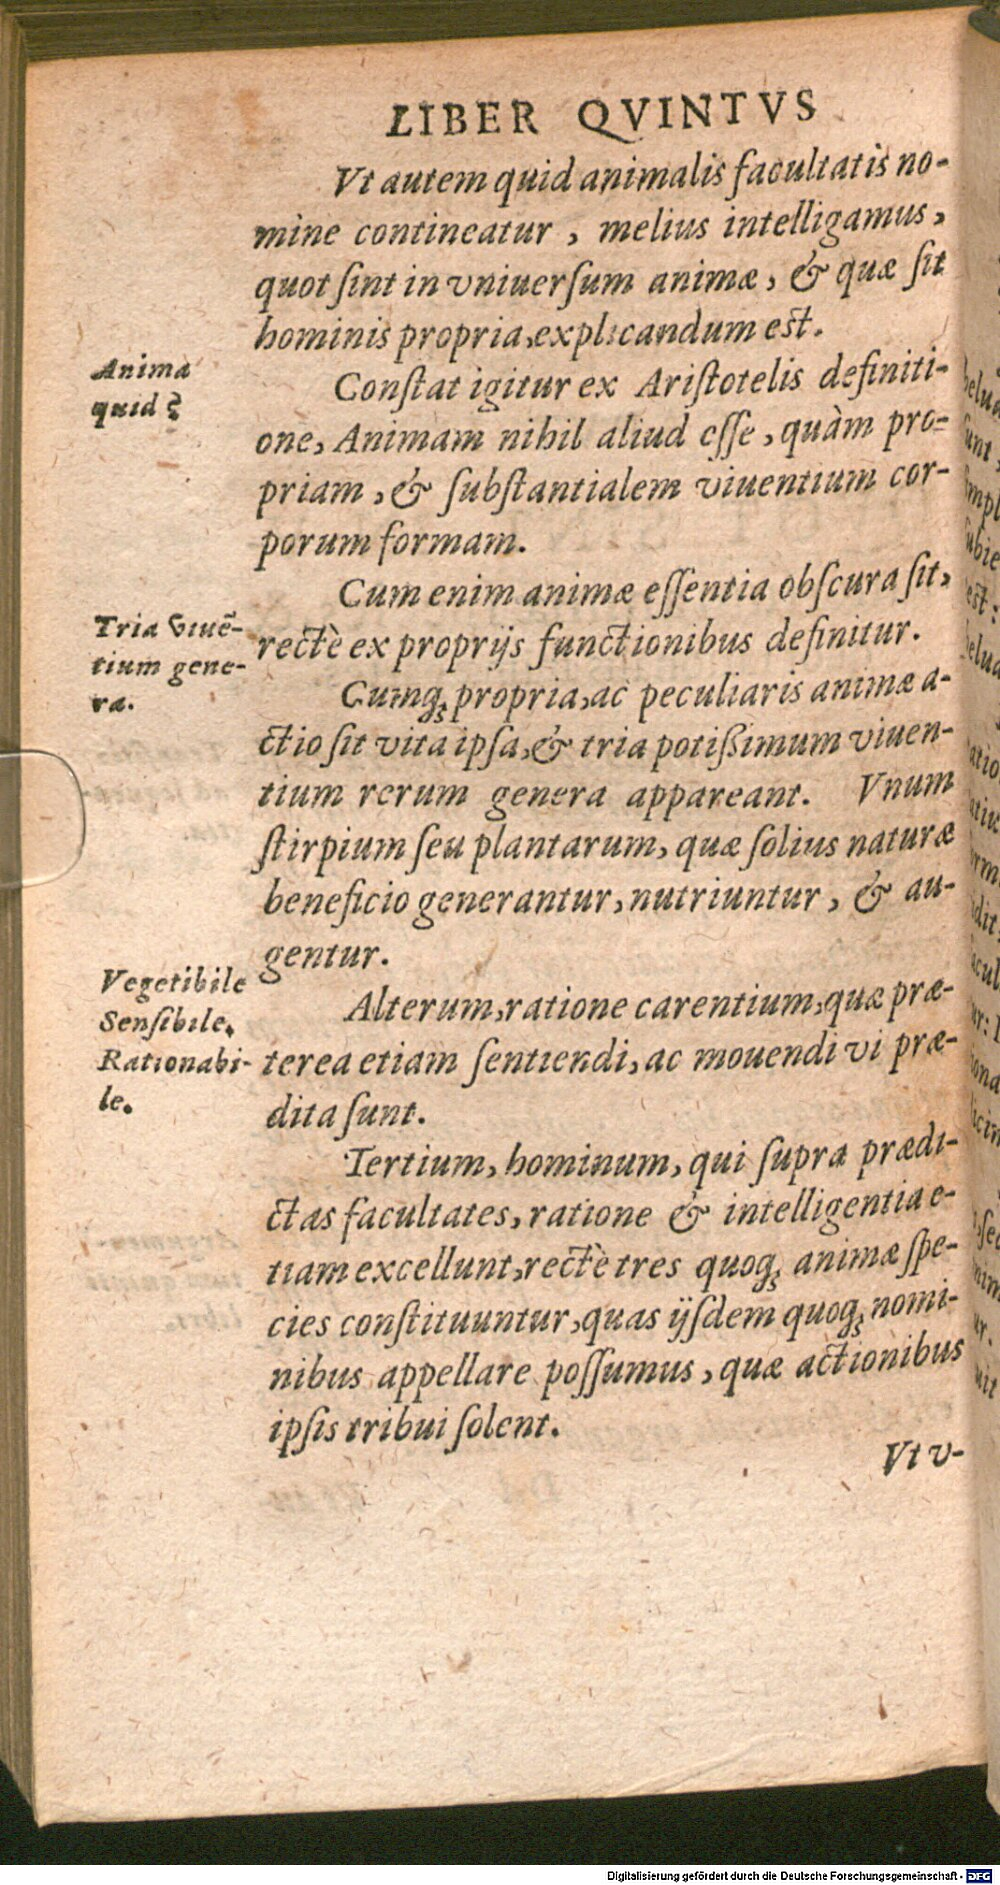 LIBER QVINTVS
Vt autem quid animalis facultatis no-
mine contineatur, melius intelligamus,
quot ſint in vniuerſum animæ, & quæ ſit
hominis propria, explicandum est.
Anima
quid?
Conſtat igitur ex Ariſtotelis definiti-
one, Animam nihil aliud eſſe, quàm pro-
priam, & ſubſtantialem viuentium cor-
porum formam.
Cum enim animæ eſſentia obſcura ſit,
rectè ex proprijs functionibus definitur.
Tria viuẽ-
tium gene-
ra.
Cumq; propria, ac peculiaris animæ a-
ctio ſit vita ipſa, & tria potiſſimum viuen-
tium rerum genera appareant. Vnum
ſtirpium ſeu plantarum, quæ ſolius naturæ
beneficio generantur, nutriuntur, & au-
gentur.
Vegetibile
Senſibile.
Rationabi-
le.
Alterum, ratione carentium, quæ præ-
terea etiam ſentiendi, ac mouendi vi præ-
dita ſunt.
Tertium, hominum, qui ſupra prædi-
ctas facultates, ratione & intelligentia e-
tiam excellunt, rectè tres quoq; animæ ſpe-
cies conſtituuntur, quas ijſdem quoq; nomi-
nibus appellare poſſumus, quæ actionibus
ipſis tribui ſolent.
Vt v-
Digitalisierung gefördert durch die Deutsche Forschungsgemeinschaft - DFG